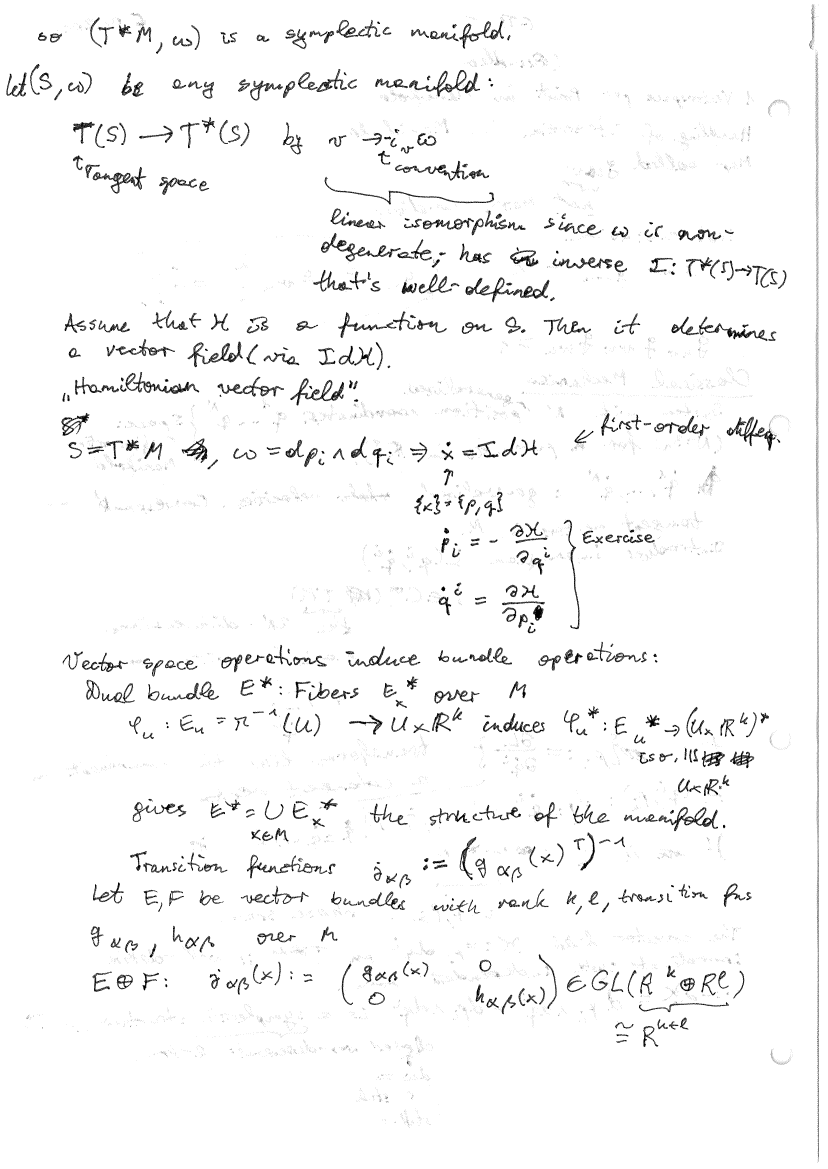 so (T*M, ω) is a symplectic manifold.
Let (S, ω) be any symplectic manifold:
T(S) → T*(S) by v → -i_v ω
↑ Tangent space
↑ convention
linear isomorphism since ω is non-
degenerate; has inverse I: T*(S)→T(S)
that's well-defined.
Assume that H is a function on S. Then it determines
a vector field (via IdH).
„Hamiltonian vector field".
S = T*M, ω = dp_i ∧ dq_i ⇒ ẋ = IdH
↙ first-order diffeq.
↑
{x} = {p, q}
ṗ_i = - ∂H/∂q^i
q̇^i = ∂H/∂p_i
} Exercise
Vector space operations induce bundle operations:
Dual bundle E*: Fibers E_x* over M
φ_u : E_u = π^{-1}(U) → U×ℝ^k induces φ_u* : E_u* → (U×ℝ^k)*
iso, ≅
U×ℝ^k
gives E* = ∪_{x∈M} E_x* the structure of the manifold.
Transition functions j_{αβ} := (g_{αβ}(x)^T)^{-1}
Let E, F be vector bundles with rank k, l, transition fns
g_{αβ}, h_{αβ} over M
E ⊕ F: j_{αβ}(x) := ( g_{αβ}(x) 0
0 h_{αβ}(x) ) ∈ GL(ℝ^k ⊕ ℝ^l)
≅ ℝ^{k+l}